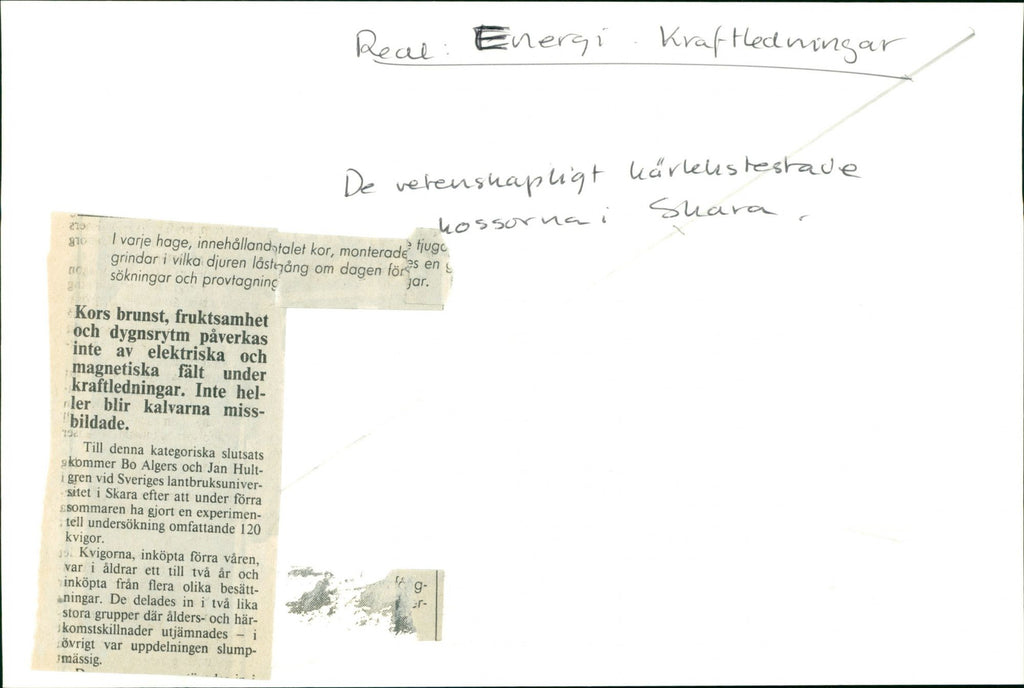 Real: Energi. Kraftledningar
De vetenskapligt kärlekstestade
kossorna i Skara.
I varje hage, innehålland talet kor, monterade tjugo
grindar i vilka djuren låst gång om dagen för es en
sökningar och provtagning jar.
Kors brunst, fruktsamhet
och dygnsrytm påverkas
inte av elektriska och
magnetiska fält under
kraftledningar. Inte hel-
ler blir kalvarna miss-
bildade.
Till denna kategoriska slutsats
kommer Bo Algers och Jan Hult-
gren vid Sveriges lantbruksuniver-
sitet i Skara efter att under förra
sommaren ha gjort en experimen-
tell undersökning omfattande 120
kvigor.
Kvigorna, inköpta förra våren,
var i åldrar ett till två år och
inköpta från flera olika besätt-
ningar. De delades in i två lika
stora grupper där ålders- och här-
komstskillnader utjämnades – i
övrigt var uppdelningen slump-
mässig.
g-
er-